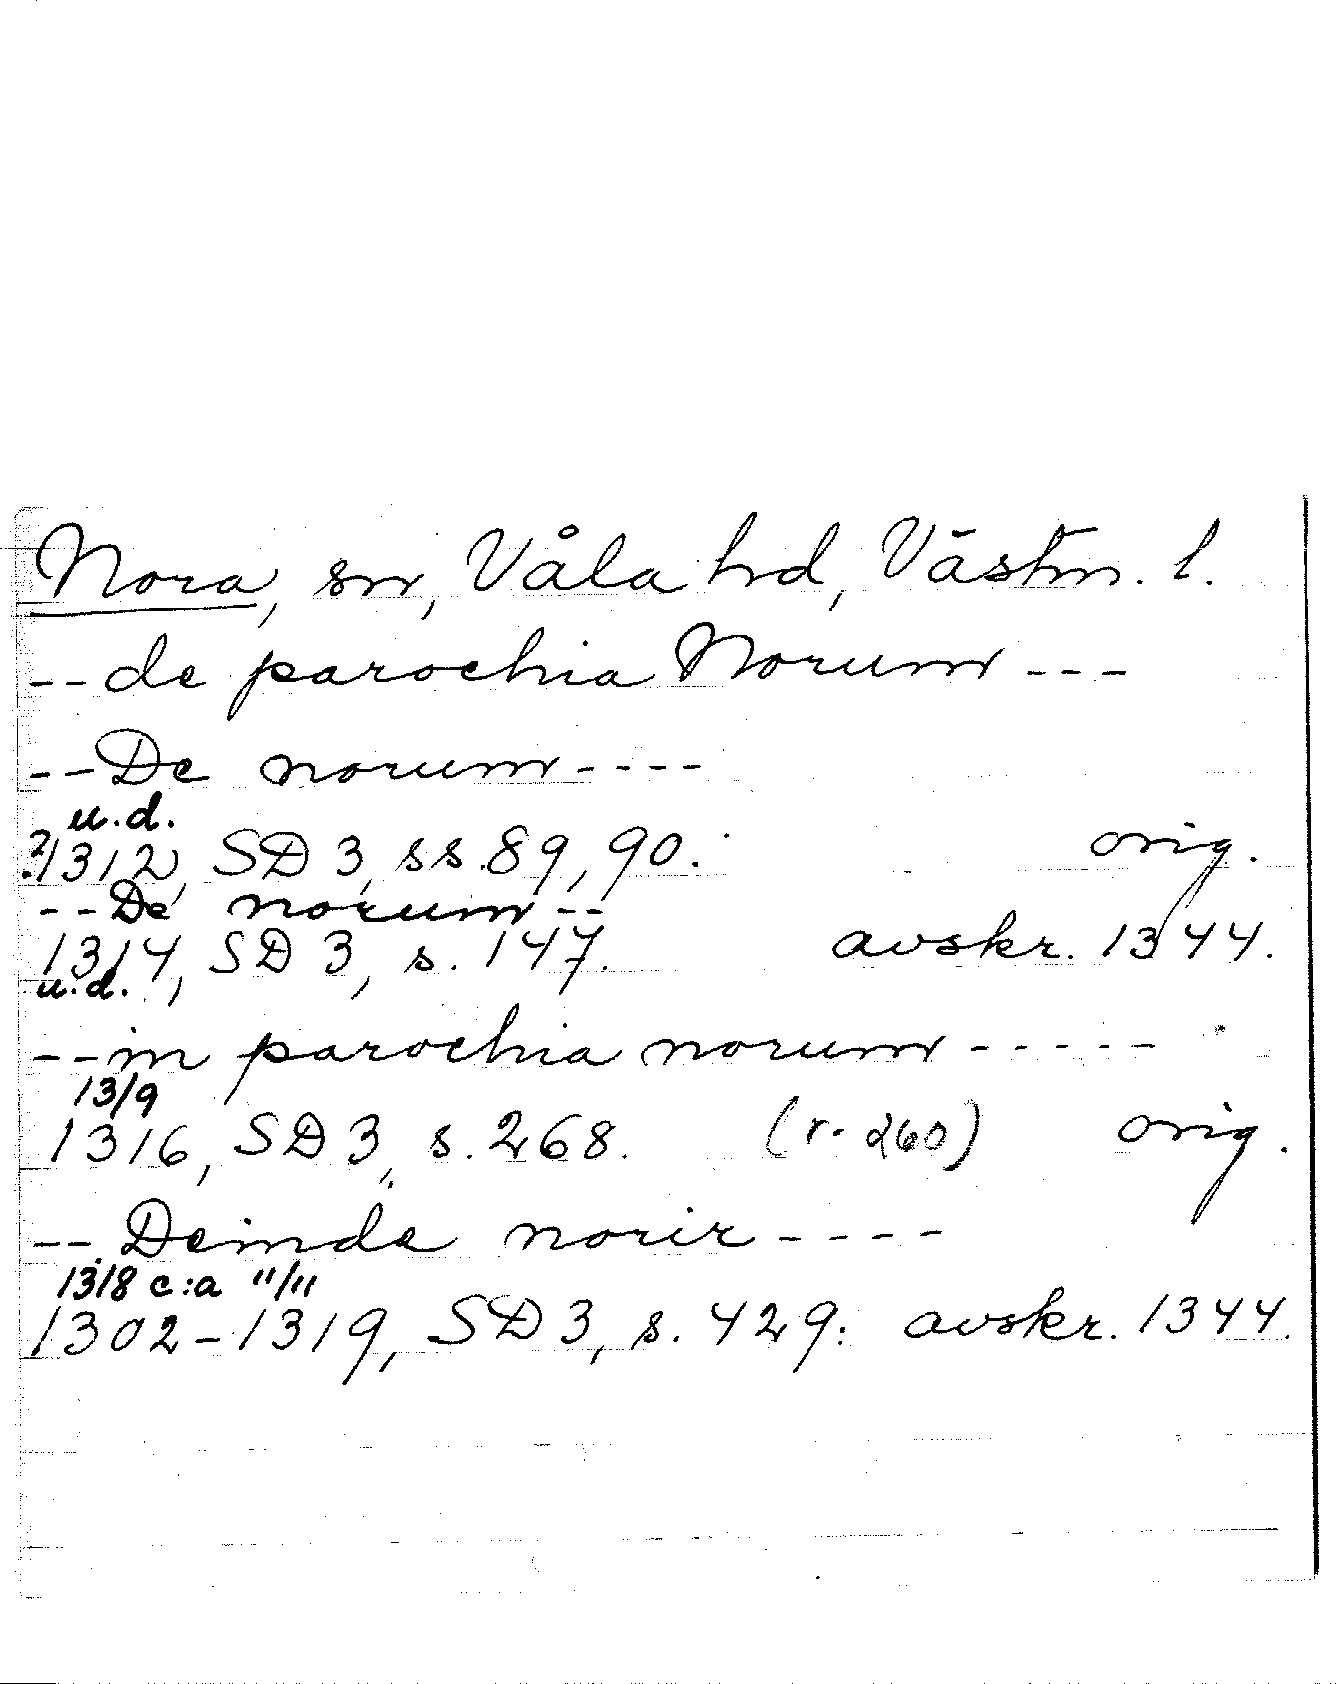 Nora, sn, Våla hd, Västm. l.
-- de parochia Norum ---
-- De norum ----
u.d.
?1312, SD 3, ss. 89, 90. orig.
-- De norum --
1314, SD 3, s. 147. avskr. 1344.
u.d.
-- in parochia norum -----
13/9
1316, SD 3, s. 268. (r. 260) orig.
-- Deinde norir ----
1318 c:a "/"
1302-1319, SD 3, s. 429. avskr. 1344.